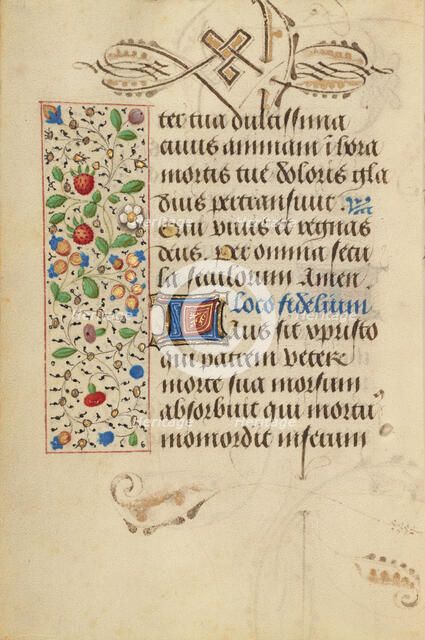 ter tua dulcissima
cuius animam i hora
mortis tue doloris gla
dius pertransiuit
Qui viuis et regnas
deus. Per omnia secu
la seculorum Amen
Loco fidelium
Laus sit xpristo
qui patrem veterē
morte sua morsum
absorbuit qui mortu
momordit infecum
Heritage